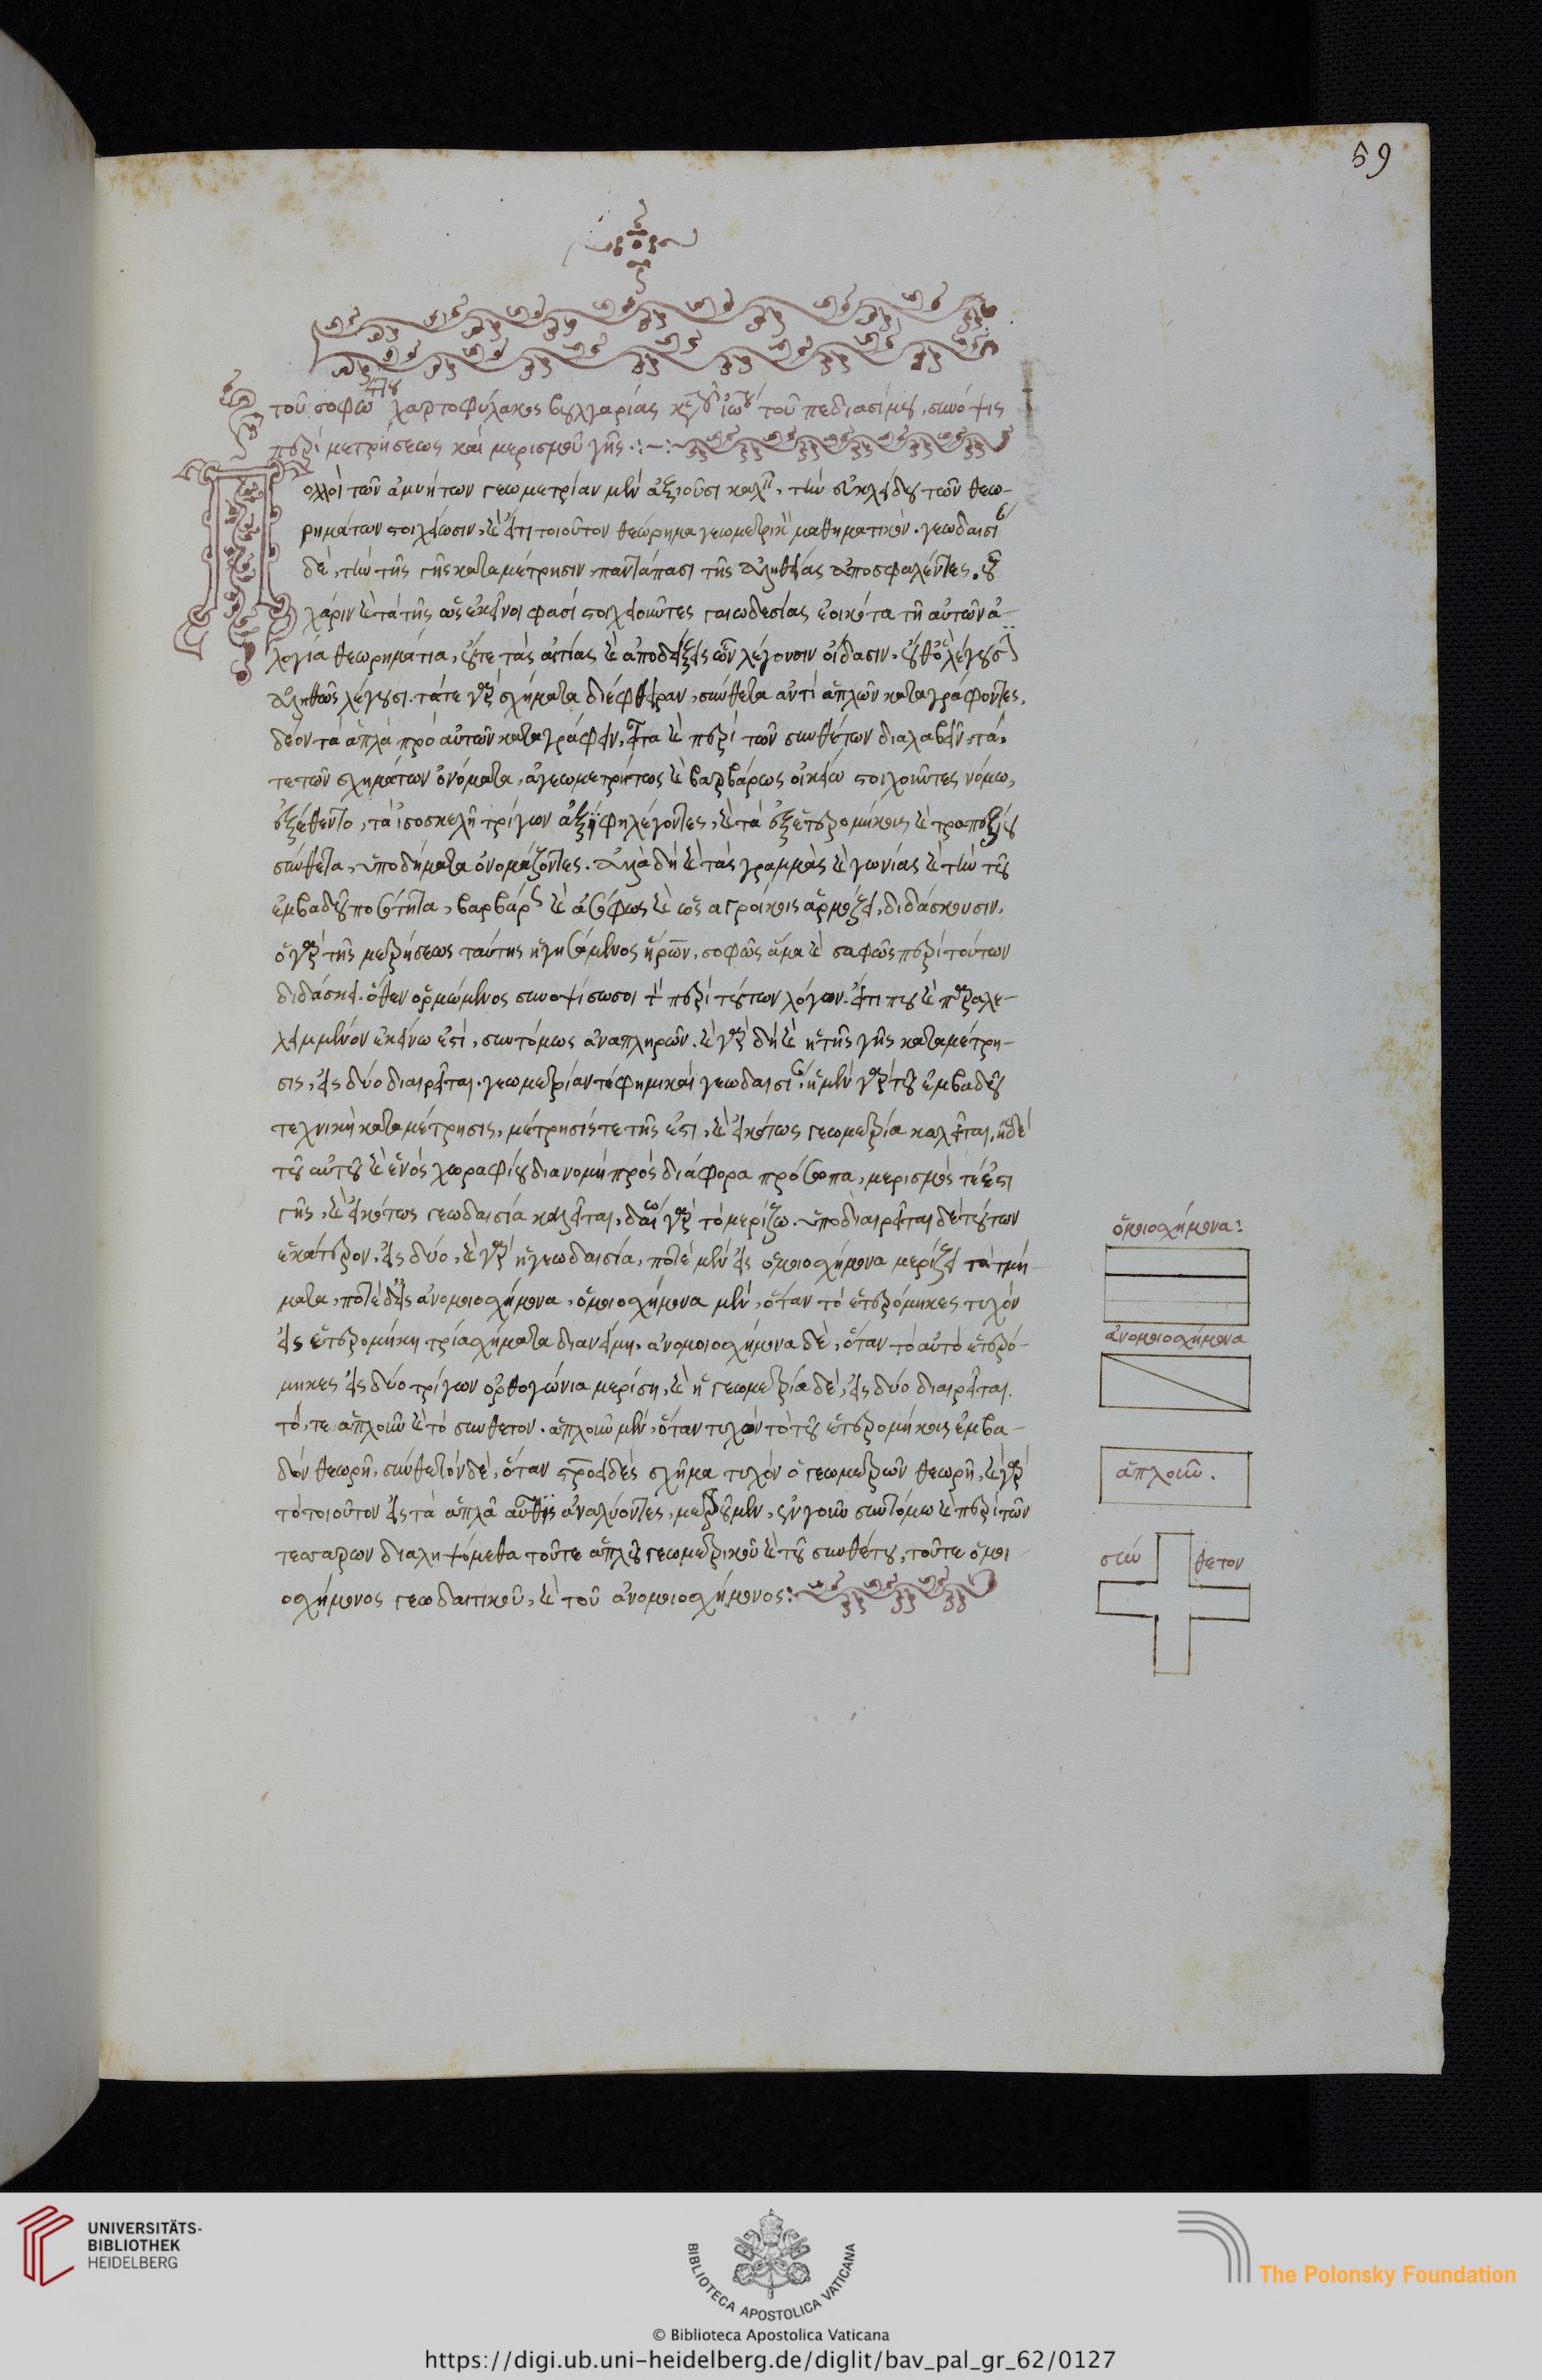 59
τοῦ σοφω<sup>τ</sup>ου χαρτοφύλακος βουλγαρίας κυροῦ ἰω<sup>ου</sup> τοῦ πεδιασίμου, σύνοψις
περὶ μετρήσεως καὶ μερισμοῦ γῆς
Πολλοὶ τῶν ἀμυήτων γεωμετρίαν μὲν ἀξιοῦσι καλεῖν, τὴν εὐκλείδου τῶν θεω-
ρημάτων στοιχείωσιν, καὶ εἴτι τοιοῦτον θεώρημα γεωμετρικὸν μαθηματικόν. γεωδαισίαν
δὲ, τὴν τῆς γῆς καταμέτρησιν, παντάπασι τῆς ἀληθείας ἀποσφαλέντες. οὗ
χάριν καὶ τὰ τῆς ὡς ἐκεῖνοι φασὶ στοιχειοῦντες γαιωδεσίας ἐοικότα τῇ αὐτῶν ἀ-
λογία θεωρημάτια, οὔτε τὰς αἰτίας καὶ ἀποδείξεις ὧν λέγουσιν οἴδασιν, οὔθ' ὃ λέγουσιν
ἀληθῶς λέγουσι. τάτε γὰρ σχήματα διέφθειραν, σύνθετα ἀντὶ ἁπλῶν καταγράφοντες,
δέον τὰ ἁπλᾶ πρὸ αὐτῶν καταγράφειν, εἶτα καὶ περὶ τῶν συνθέτων διαλαβεῖν. τά,
τε τῶν σχημάτων ὀνόματα, ἀγεωμετρήτως καὶ βαρβάρως οἰκείω στοιχοῦντες νόμω,
ἐξέθεντο, τὰ ἰσοσκελῆ τρίγωνα ἀξιφη λέγοντες, καὶ τὰ ἐξ ἑτερομήκους καὶ τραπεζίου
σύνθετα, ὑποδήματα ὀνομάζοντες. ἀλλὰ δὴ καὶ τὰς γραμμὰς καὶ γωνίας καὶ τὴν τοῦ
ἐμβαδοῦ ποσότητα, βαρβάρως καὶ ἀσόφως καὶ ὡς ἀγροίκοις ἁρμόζει, διδάσκουσιν,
ὁ γὰρ τῆς μετρήσεως ταύτης ἡγησάμενος ἥρων, σοφῶς ἅμα καὶ σαφῶς περὶ τούτων
διδάσκει. ὅθεν ὁρμώμενος συνοψίσω σοι τὸν περὶ τούτων λόγον. εἴτι που καὶ παραλε-
λειμμένον ἐκείνω ἐστὶ, συντόμως ἀναπληρῶν. καὶ γὰρ δὴ καὶ ἡ τῆς γῆς καταμέτρη-
σις, εἰς δύο διαιρεῖται. γεωμετρίαν τέ φημι καὶ γεωδαισίαν, ἡ μὲν γὰρ τοῦ ἐμβαδοῦ
τεχνικὴ καταμέτρησις, μέτρησίς τε τῆς ἐστι, καὶ εἰκότως γεωμετρία καλεῖται, ἡ δὲ
τοῦ αὐτοῦ καὶ ἑνὸς χωραφίου διανομὴ πρὸς διάφορα πρόσωπα, μερισμός τέ ἐστι
γῆς, καὶ εἰκότως γεωδαισία καλεῖται, δαίω γὰρ τὸ μερίζω. ὑποδιαιρεῖται δὲ τούτων
ἑκάτερον, εἰς δύο, καὶ γὰρ ἡ γεωδαισία, ποτὲ μὲν εἰς ὁμοιοσχήμονα μερίζει τὰ τμή-
ματα, ποτὲ δὲ εἰς ἀνομοιοσχήμονα, ὁμοιοσχήμονα μὲν, ὅταν τὸ ἑτερόμηκες τυχὸν
εἰς ἑτερομήκη τρία σχήματα διανείμη, ἀνομοιοσχήμονα δὲ, ὅταν τὸ αὐτὸ ἑτερό-
μηκες εἰς δύο τρίγωνα ὀρθογώνια μερίση, καὶ ἡ γεωμετρία δὲ, εἰς δύο διαιρεῖται.
τό, τε ἁπλοῦν καὶ τὸ σύνθετον. ἁπλοῦν μὲν, ὅταν τυχὸν τὸ τοῦ ἑτερομήκους ἐμβα-
δὸν θεωρῆ, σύνθετον δὲ, ὅταν σταυροειδὲς σχῆμα τυχὸν ὁ γεωμετρῶν θεωρῆ, καὶ γὰρ
τὸ τοιοῦτον εἰς τὰ ἁπλᾶ αὖθις ἀναλύοντες, μετροῦμεν, ἐν γοῦν συντόμω καὶ περὶ τῶν
τεσσάρων διαληψόμεθα τοῦτε ἁπλοῦ γεωμετρικοῦ καὶ τοῦ συνθέτου, τοῦτε ὁμοι-
οσχήμονος γεωδαιτικοῦ, καὶ τοῦ ἀνομοιοσχήμονος:
ὁμοιοσχήμονα:
ἀνομοιοσχήμονα
ἁπλοῦν.
σύν θετον
UNIVERSITÄTS-
BIBLIOTHEK
HEIDELBERG
BIBLIOTECA APOSTOLICA VATICANA
The Polonsky Foundation
© Biblioteca Apostolica Vaticana
https://digi.ub.uni-heidelberg.de/diglit/bav_pal_gr_62/0127